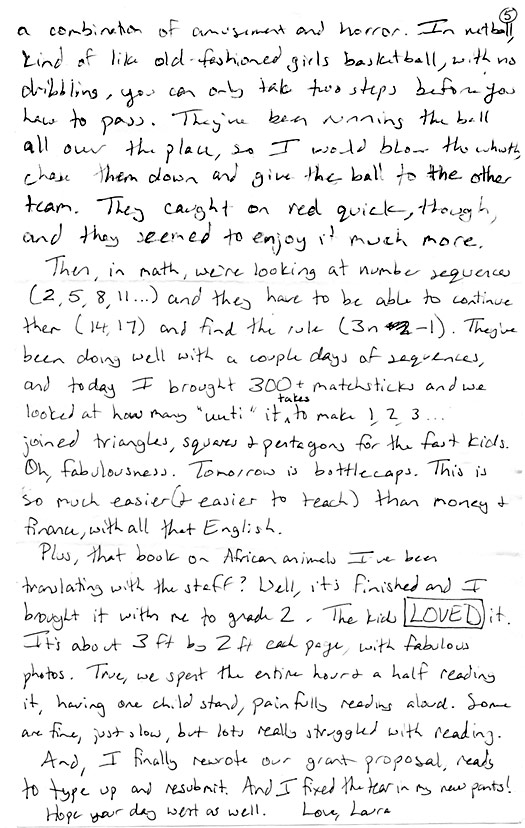 ⑤
a combination of amusement and horror. In netball,
kind of like old-fashioned girls basketball, with no
dribbling, you can only take two steps before you
have to pass. They've been running the ball
all over the place, so I would blow the whistle,
chase them down and give the ball to the other
team. They caught on real quick, though,
and they seemed to enjoy it much more.
Then, in math, we're looking at number sequences
(2, 5, 8, 11...) and they have to be able to continue
them (14, 17) and find the rule (3n -1). They've
been doing well with a couple days of sequences,
and today I brought 300+ matchsticks and we
looked at how many "uuti" it takes to make 1, 2, 3...
joined triangles, squares & pentagons for the fast kids.
Oh, fabulousness. Tomorrow is bottlecaps. This is
so much easier (& easier to teach) than money &
finance, with all that English.
Plus, that book on African animals I've been
translating with the staff? Well, it's finished and I
brought it with me to grade 2. The kids LOVED it.
It's about 3 ft by 2 ft each page, with fabulous
photos. True, we spent the entire hour & a half reading
it, having one child stand, painfully reading aloud. Some
are fine, just slow, but lots really struggled with reading.
And, I finally rewrote our grant proposal, ready
to type up and resubmit. And I fixed the tear in my new pants!
Hope your day went as well. Love, Laura